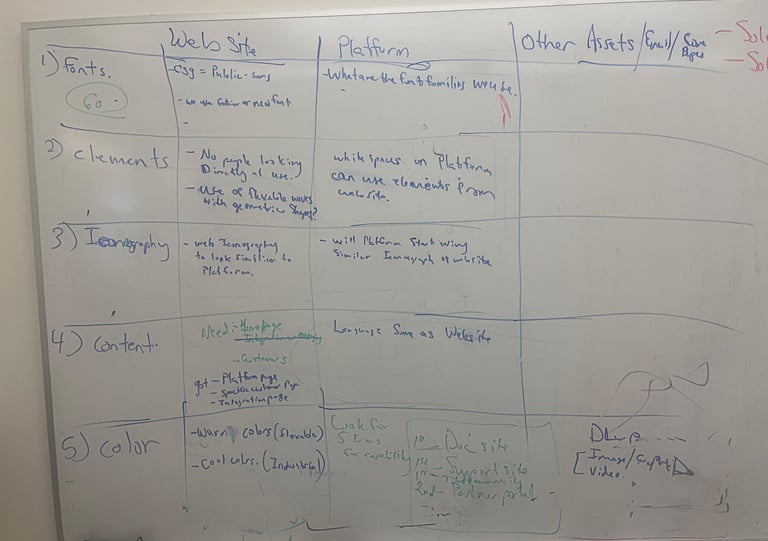 Web Site
Platform
Other Assets/Email/
Pages
1) fonts.
Go.
= Public-sans
- What are the font families we use.
-
2) elements
- No people looking
Directly at use.
- Use of flexable waves
with geometric shapes?
white spaces on Platform
can use elements from
website.
3) Iconography
- web Iconography
to look similier to
Platform.
- will Platform Start using
Similar Iconograph as website
4) Content.
Need:- Homepage
- Customers
got - Platform page
- Integration page
Language Same as Website
5) Color
- Warm colors (flexable)
- Cool colors. (Industrial)
Look for
for capability
1st Doc site
1st - Support site
2nd - Partner portal -
[Image/
Video.